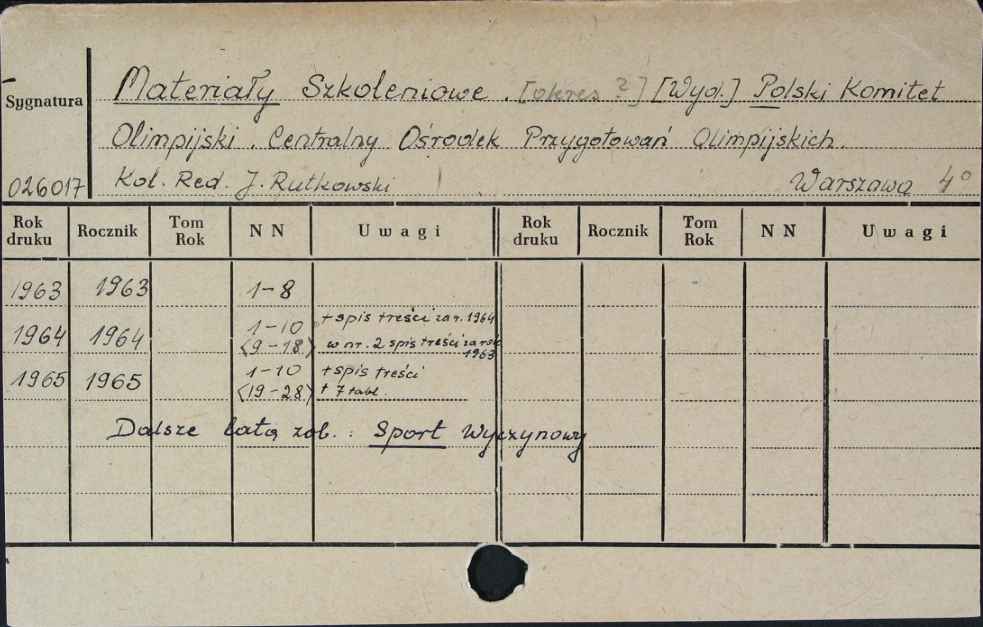 Sygnatura
Materiały Szkoleniowe. [okres ?] [Wyd.] Polski Komitet
Olimpijski. Centralny Ośrodek Przygotowań Olimpijskich.
026017 Kol. Red. J. Rutkowski Warszawa 4°
Rok druku Rocznik Tom Rok NN Uwagi Rok druku Rocznik Tom Rok NN Uwagi
1963 1963 1-8
1964 1964 1-10 + spis treści za r. 1964
(9-18) w nr. 2 spis treści za rok 1963
1965 1965 1-10 + spis treści
(19-28) + 7 tabl.
Dalsze lata zob.: Sport Wyczynowy